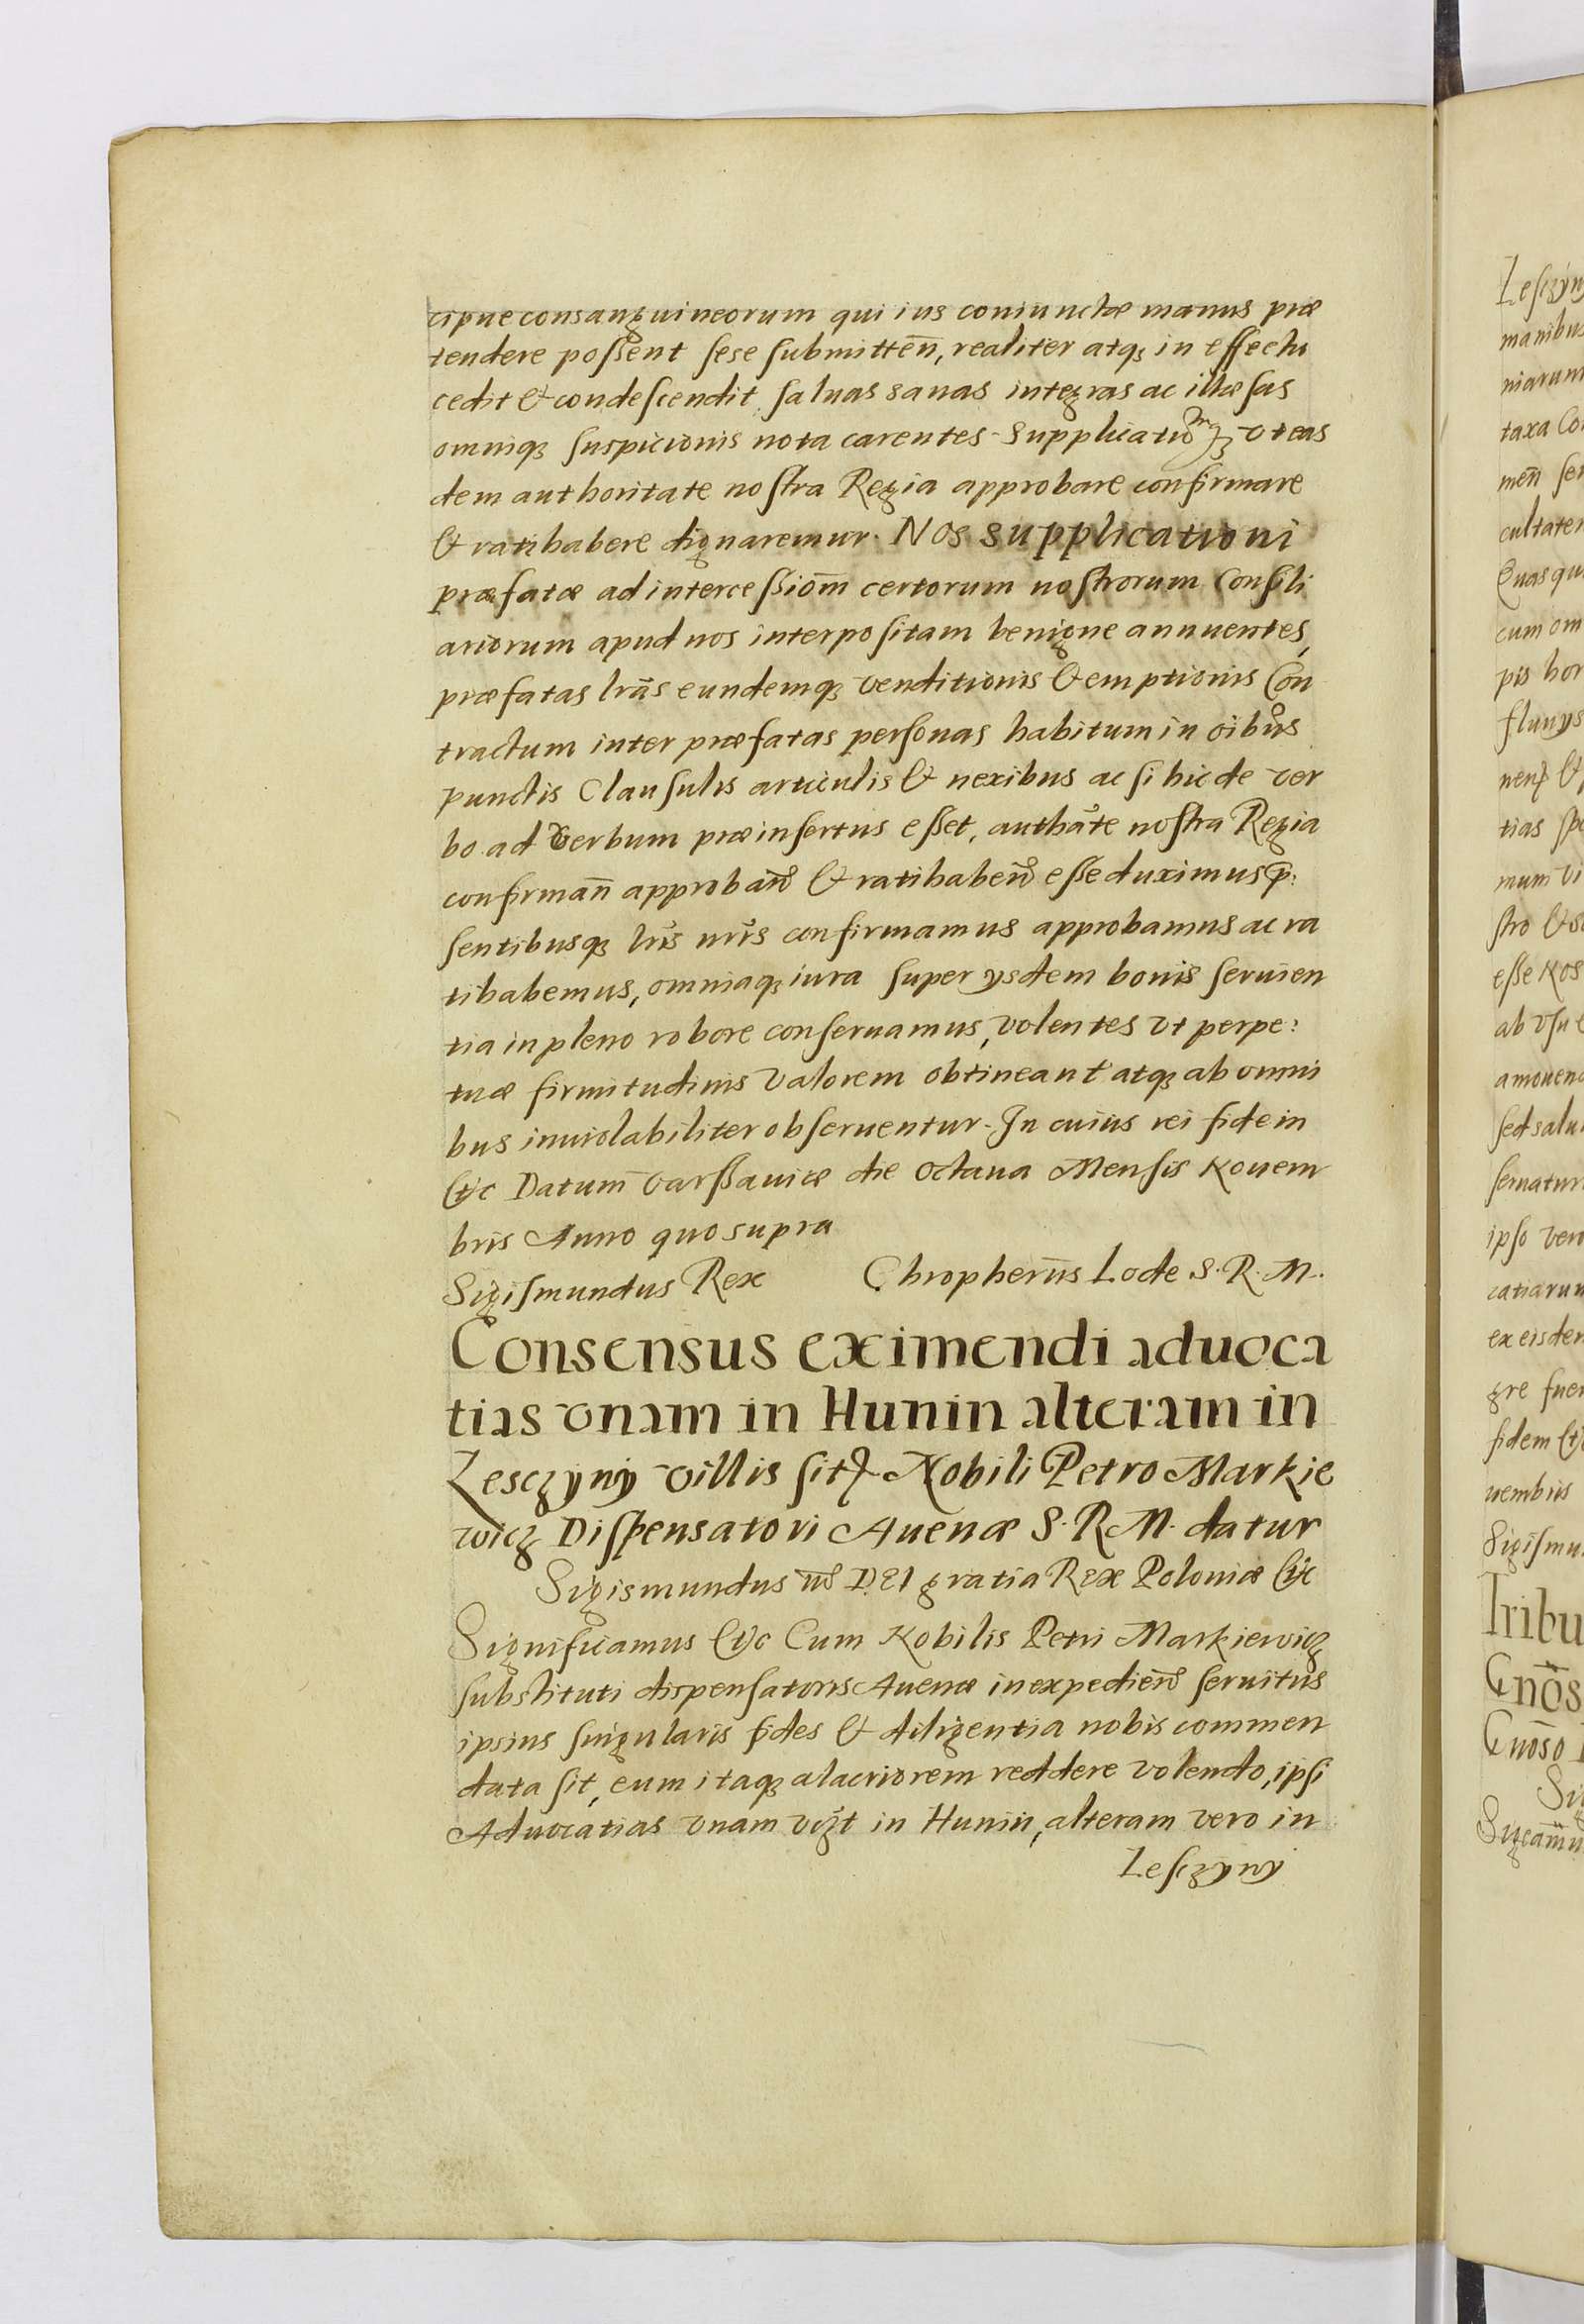 cipue consanguineorum qui ius coniunctæ manus præ
tendere possent sese submitteñ, realiter atq; in effectu
cedit & condescendit, saluas sanas integras ac illæsas
omniq; suspicionis nota carentes. Supplicatũq; vt eas
dem authoritate nostra Regia approbare confirmare
& ratihabere dignaremur. Nos supplicationi
præfatæ ad intercessiom̃ certorum nostrorum Consili
ariorum apud nos interpositam benigne annuentes,
præfatas lrãs eundemq; venditionis & emptionis Con
tractum inter præfatas personas habitum in oibũs
punctis Clausulis articulis & nexibus ac si hic de ver
bo ad verbum præinsertus esset, authãte nostra Regia
confirmañ approbañd & ratihabeñd esse duximus p̃:
sentibusq; lrĩs nrĩs confirmamus approbamus ac ra
tihabemus, omniaq; iura super ysdem bonis seruien
tia in pleno robore conseruamus, volentes vt perpe:
tuæ firmitudinis valorem obtineant atq; ab omni
bus inuiolabiliter obseruentur. In cuius rei fidem
&c Datum Varssauiæ die octaua Mensis Nouem
bris Anno quo supra
Sigismundus Rex Chropherus̃ Lode S. R. M.
Consensus eximendi aduoca
tias vnam in Hunin alteram in
Lesczyny villis sit. Nobili Petro Markie
wicz Dispensatori Auenæ S. R. M. datur
Sigismundus 3us DEI gratia Rex Poloniæ &c
Significamus &c Cum Nobilis Petri Markiewicz
substituti dispensatoris Auenæ in expedieñd seruitus
ipsius singularis fides & diligentia nobis commen
data sit, eum itaq; alacriorem reddere volendo, ipsi
Aduocatias vnam vizt in Hunin, alteram vero in
Lesczyny
Lesczyny
manibus
niarum
taxa Co
meñ ser
cultatem
Quas qu
cum om
pis hor
fluuys
tias spe
mum vi
stro & s
esse Nos
ab vsu e
amouen
sed salu
seruatur
ipso vero
catiarum
ex eisdem
gre fuer
fidem &c
uembris
Sigismu
Tribu
Gnõs
Gnõso
Si